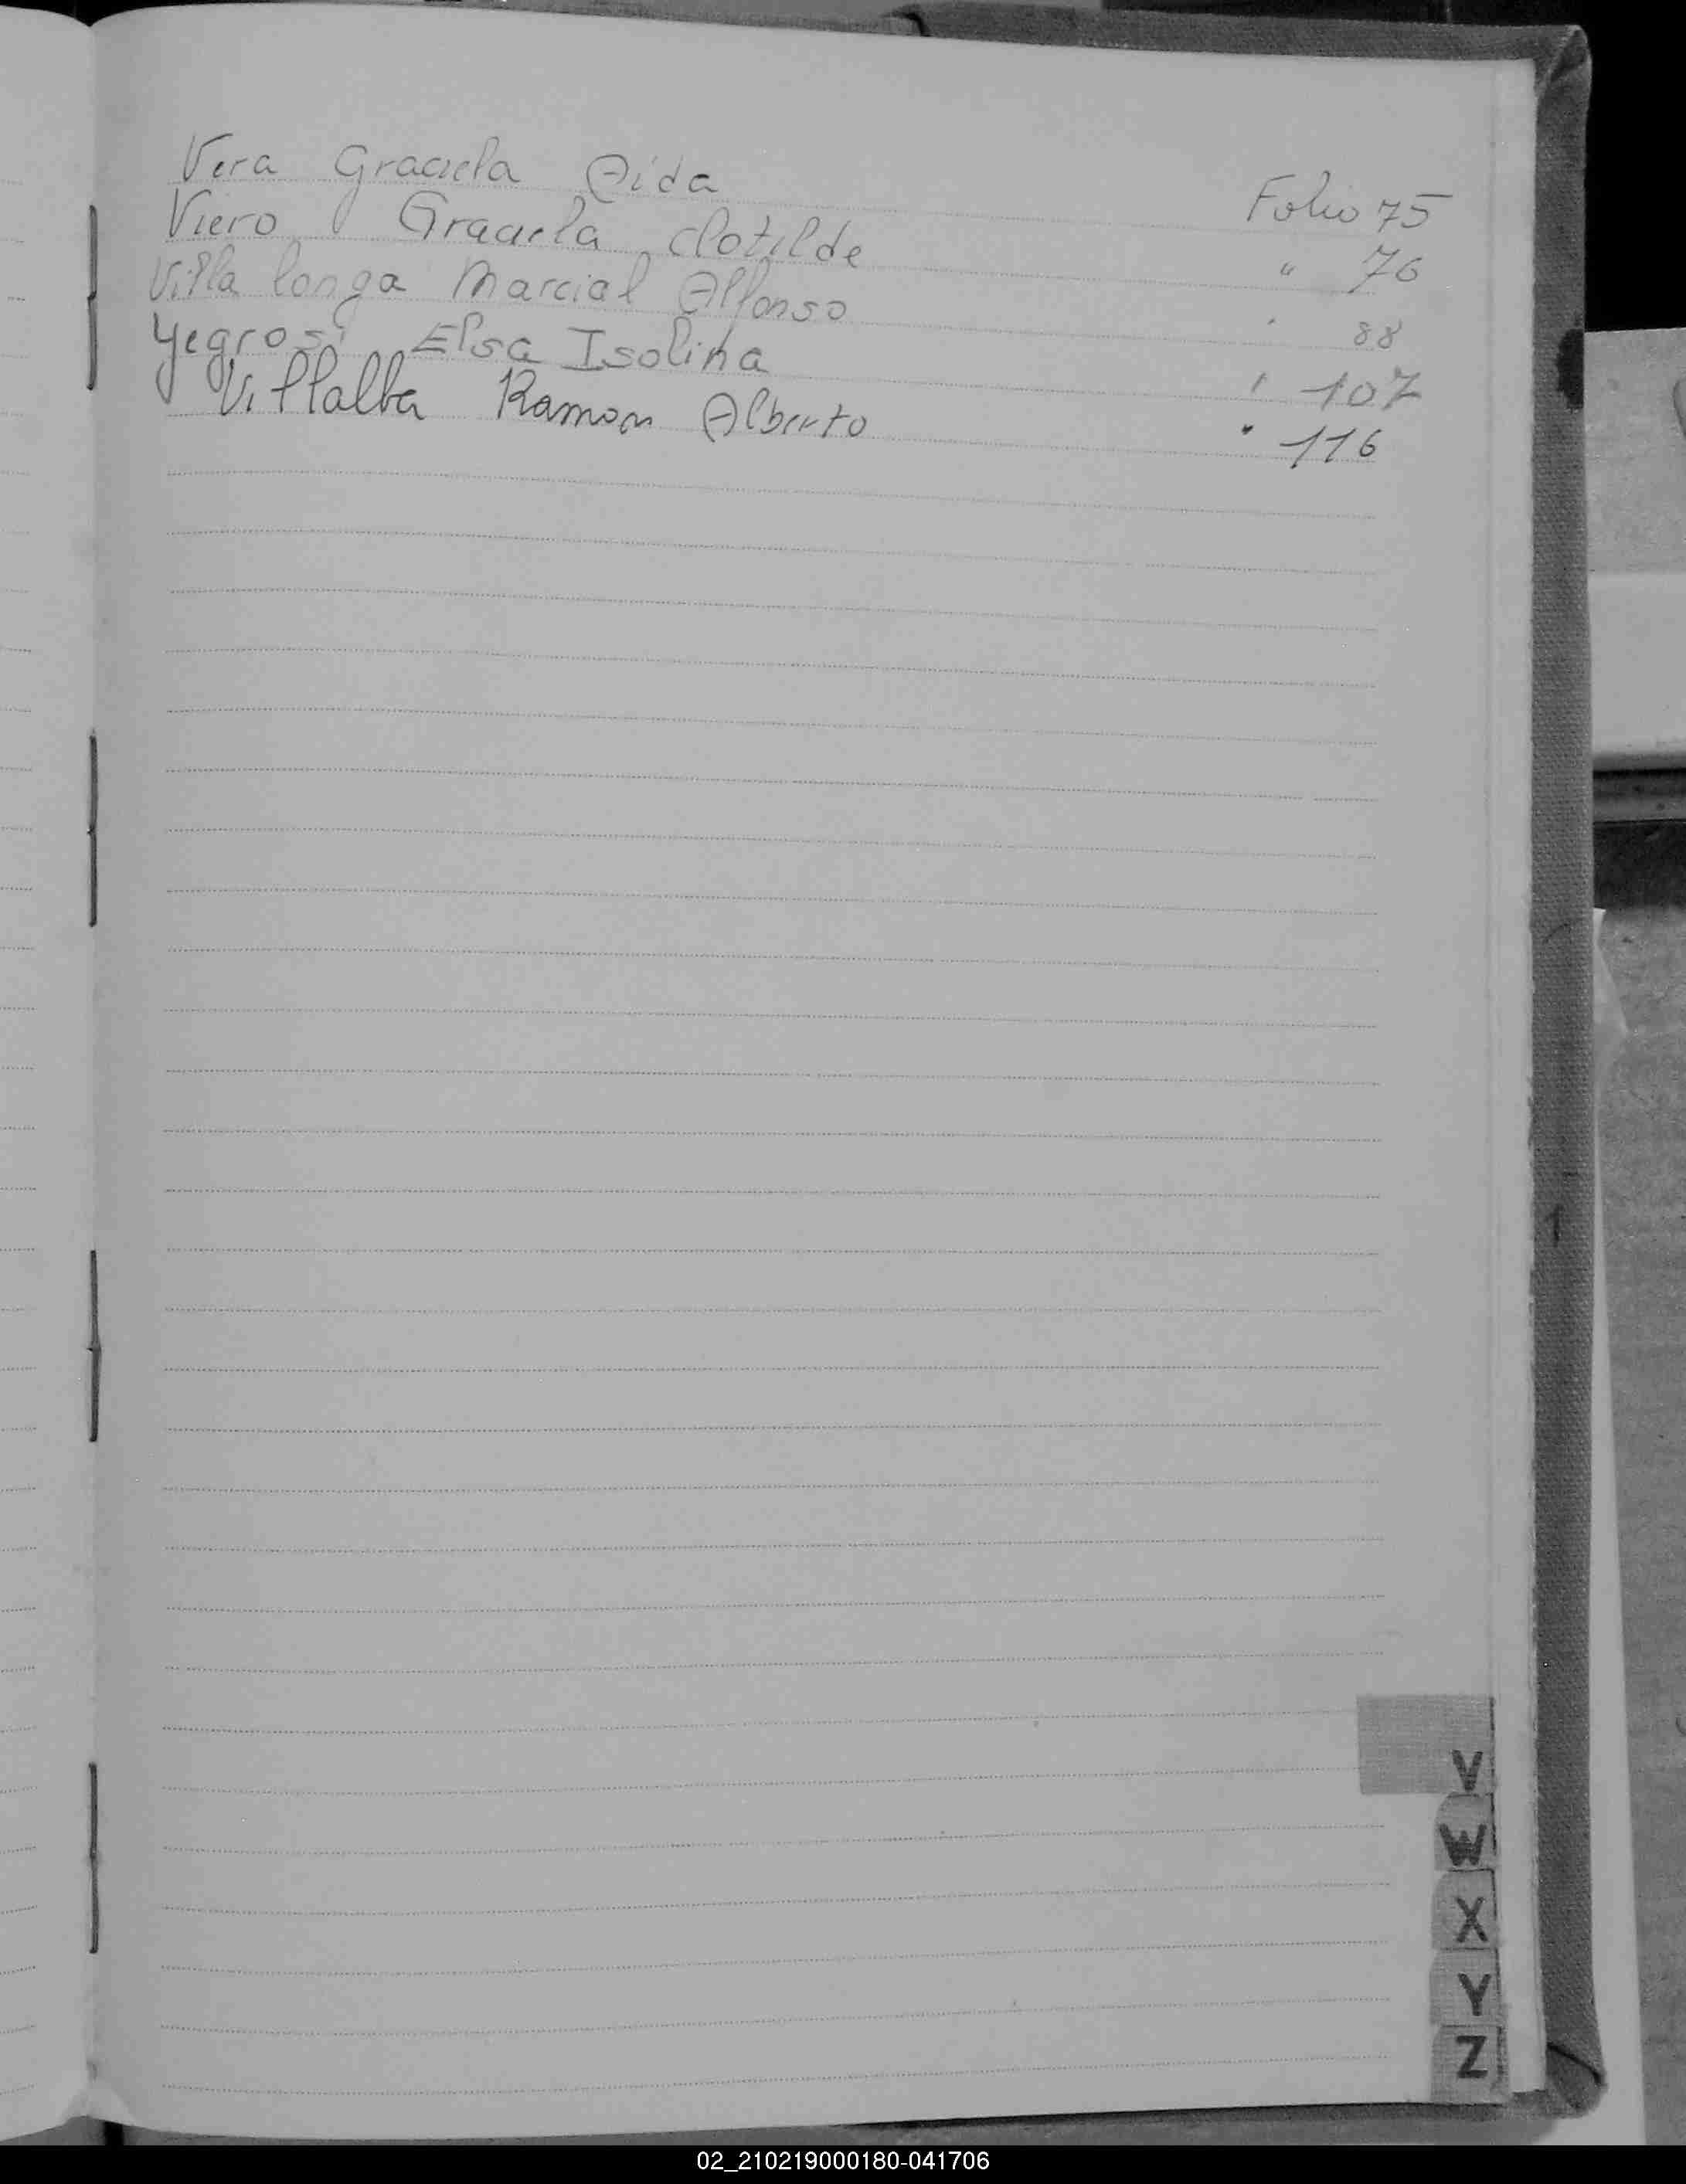 Vera Graciela Aida Folio 75
Viero Graciela Clotilde " 76
Villa longa Marcial Alfonso " 88
Yegros Elsa Isolina " 107
Villalba Ramon Alberto " 116
V
W
X
Y
Z
02_210219000180-041706